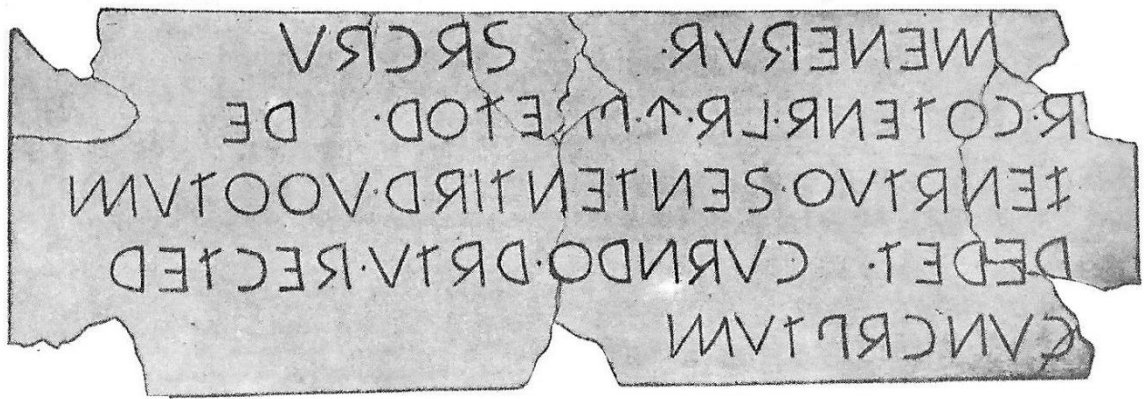 MENERVA· SACRV
A·COTENA·LA·F·PRETOD· DE
ZENATVO·SENTENTIAD·VOOTVM
DEDET· CVANDO·DATV·RECTED
CVNCAPTVM